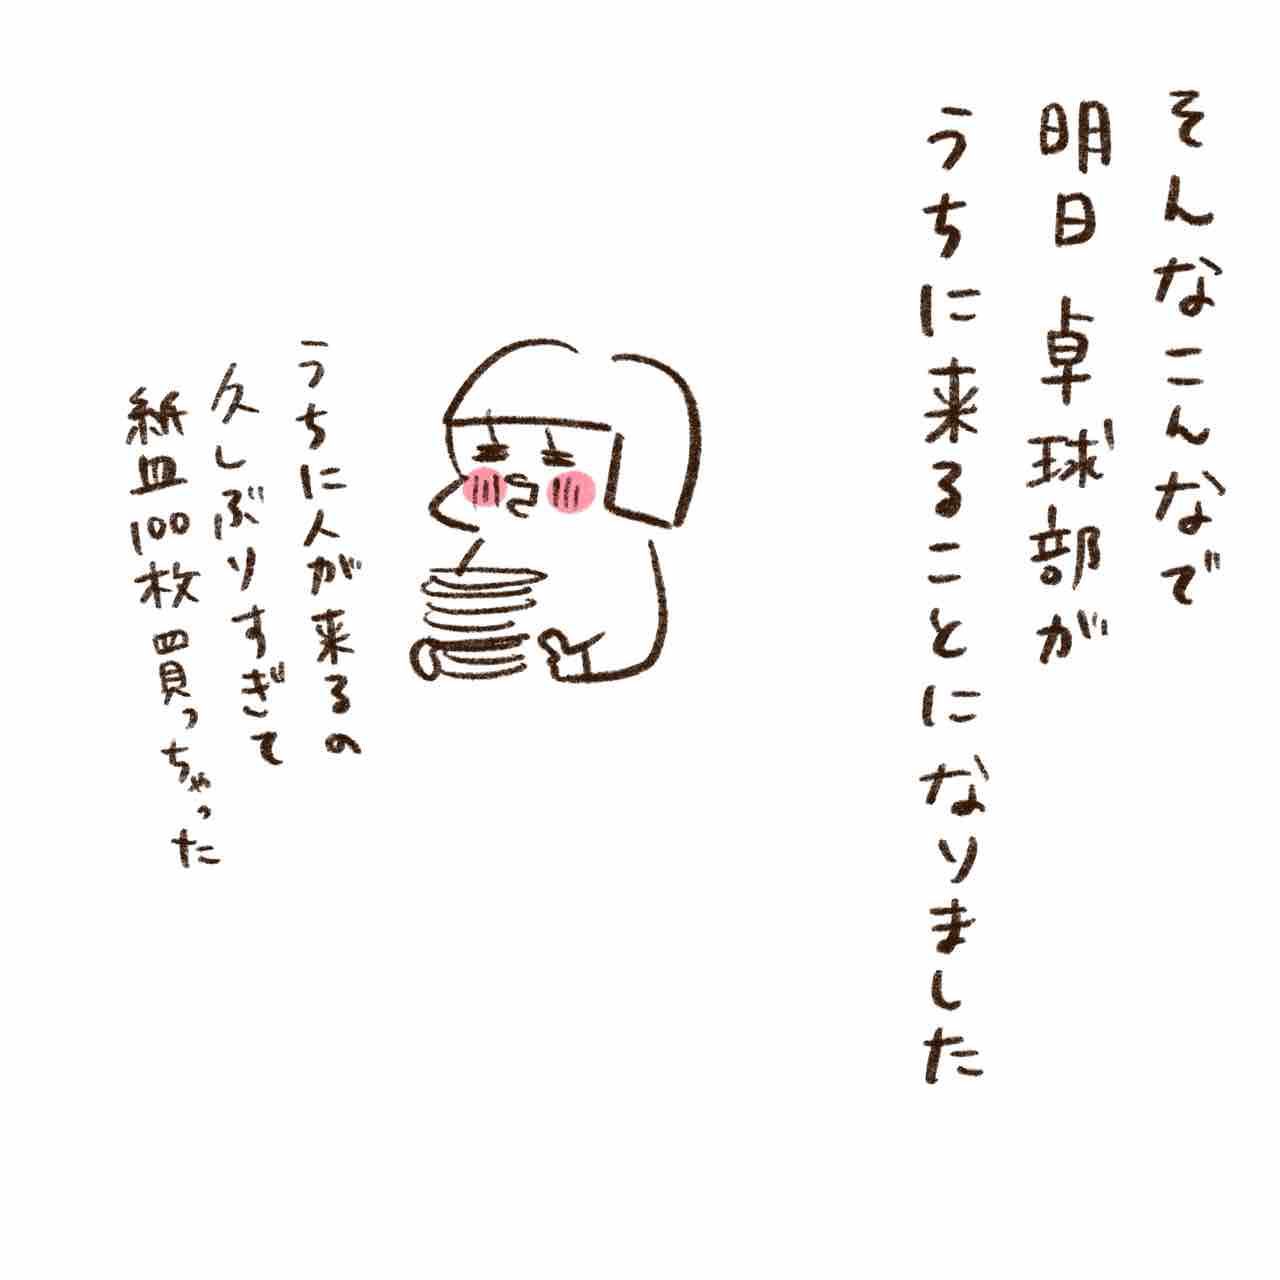 そんなこんなで
明日 卓球部が
うちに来ることになりました
うちに人が来るの
久しぶりすぎて
紙皿100枚買っちゃった